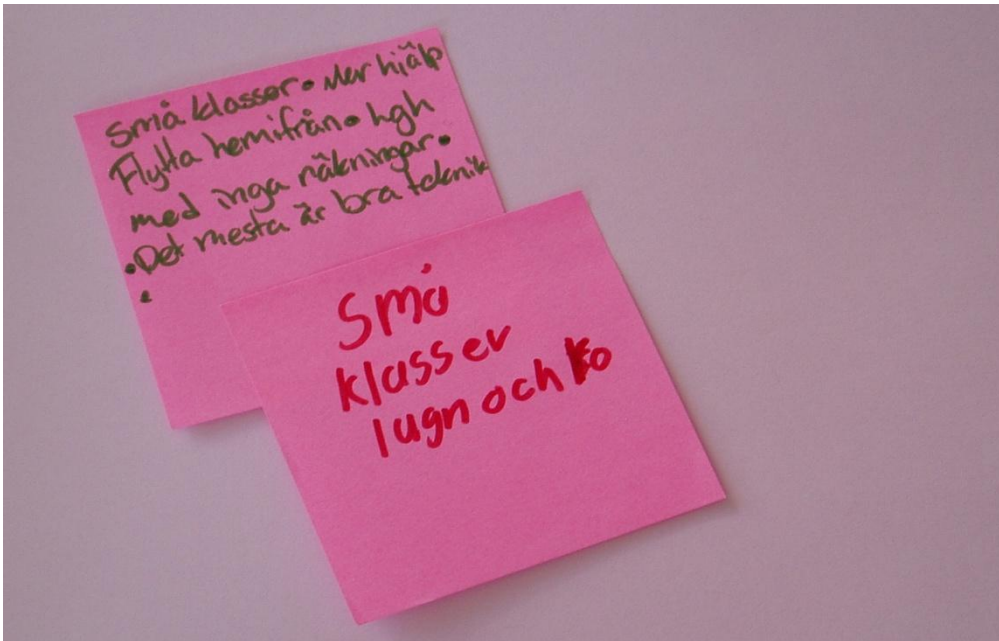 Små klasser • Mer hjälp
Flytta hemifrån • hgh
med inga räkningar •
• Det mesta är bra teknik
•
Små
klasser
lugn och